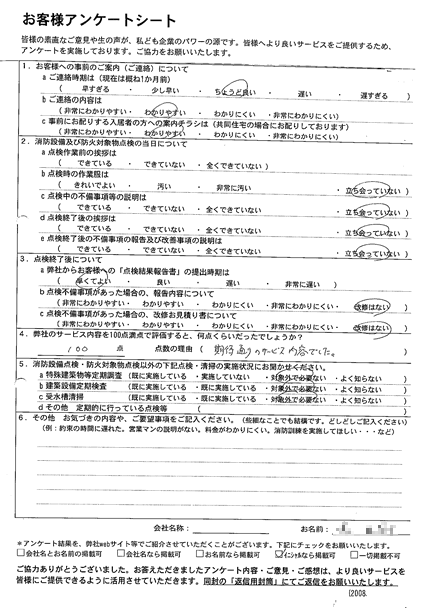 お客様アンケートシート
皆様の素直なご意見や生の声が、私ども企業のパワーの源です。皆様へより良いサービスをご提供するため、
アンケートを実施しております。ご協力をお願いいたします。
1．お客様への事前のご案内（ご連絡）について
a ご連絡時期は（現在は概ね1か月前）
（ 早すぎる ・ 少し早い ・ ちょうど良い ・ 遅い ・ 遅すぎる ）
b ご連絡の内容は
（非常にわかりやすい・ わかりやすい ・ わかりにくい ・非常にわかりにくい）
c 事前にお配りする入居者の方への案内チラシは（共同住宅の場合にお配りしております）
（非常にわかりやすい・ わかりやすい ・ わかりにくい ・非常にわかりにくい）
2．消防設備及び防火対象物点検の当日について
a 点検作業前の挨拶は
（ できている ・ できていない ・全くできていない ）
b 点検時の作業服は
（ きれいでよい ・ 汚い ・ 非常に汚い ・立ち会っていない ）
c 点検中の不備事項等の説明は
（ できている ・ できていない ・全くできていない ・立ち会っていない ）
d 点検終了後の挨拶は
（ できている ・ できていない ・全くできていない ・立ち会っていない ）
e 点検終了後の不備事項の報告及び改善事項の説明は
（ できている ・ できていない ・全くできていない ・立ち会っていない ）
3．点検終了後について
a 弊社からお客様への「点検結果報告書」の提出時期は
（ 早くてよい ・ 良い ・ 遅い ・ 非常に遅い ）
b 点検不備事項があった場合の、報告内容について
（非常にわかりやすい・ わかりやすい ・ わかりにくい ・非常にわかりにくい・ 改修はない ）
c 点検不備事項があった場合の、改修お見積り書について
（非常にわかりやすい・ わかりやすい ・ わかりにくい ・非常にわかりにくい・ 改修はない ）
4．弊社のサービス内容を100点満点で評価すると、何点くらいだったでしょうか？
100 点 点数の理由（ 期待通りのサービス内容でした。 ）
5．消防設備点検・防火対象物点検以外の下記点検・清掃の実施状況にお聞かせください。
a 特殊建築物等定期調査（既に実施している ・実施していない ・対象外で必要ない ・よく知らない ）
b 建築設備定期検査 （既に実施している ・既に実施している ・対象外で必要ない ・よく知らない ）
c 受水槽清掃 （既に実施している ・既に実施している ・対象外で必要ない ・よく知らない ）
d その他 定期的に行っている点検等 （ ）
6．その他 お気づきの内容や、ご要望事項をご記入ください。（些細なことでも結構です。どしどしご記入ください）
（例：約束の時間に遅れた。営業マンの説明がない。料金がわかりにくい。消防訓練を実施してほしい・・・など）
会社名称： お名前：
*アンケート結果を、弊社webサイト等でご紹介させていただくことがございます。下記にチェックをお願いいたします。
□会社名とお名前の掲載可 □会社名なら掲載可 □お名前なら掲載可 ☑イニシャルなら掲載可 □一切掲載不可
ご協力ありがとうございました。お答えただきましたアンケート内容・ご意見・ご感想は、より良いサービスを
皆様にご提供できるように活用させていただきます。同封の「返信用封筒」にてご返信をお願いいたします。
(2008.